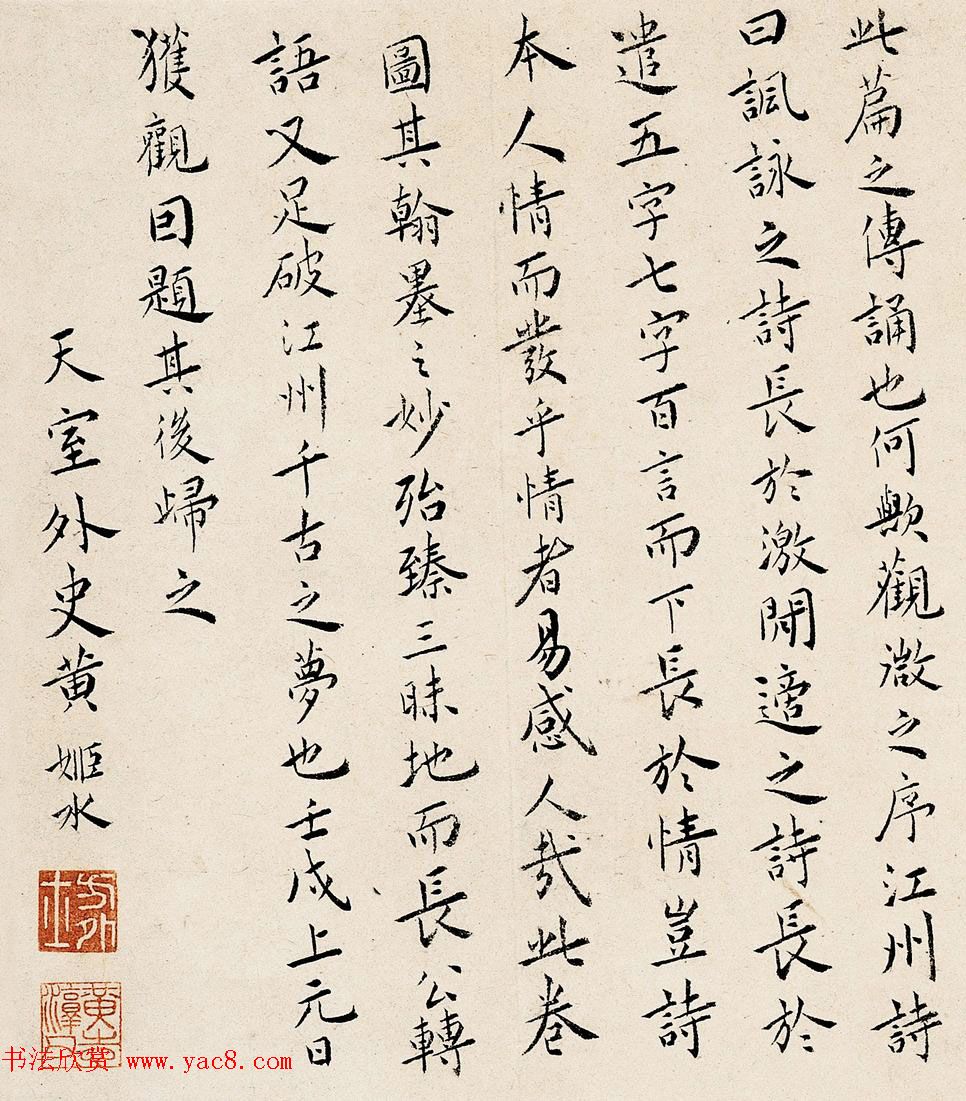 此篇之傳誦也何歟觀微之序江州詩
曰諷詠之詩長於激閒適之詩長於
遣五字七字百言而下長於情豈詩
本人情而發乎情者易感人哉此卷
圖其翰墨之妙殆臻三昧地而長公轉
語又足破江州千古之夢也壬戌上元日
獲觀因題其後歸之
天室外史黃姬水
書法欣賞 www.yac8.com